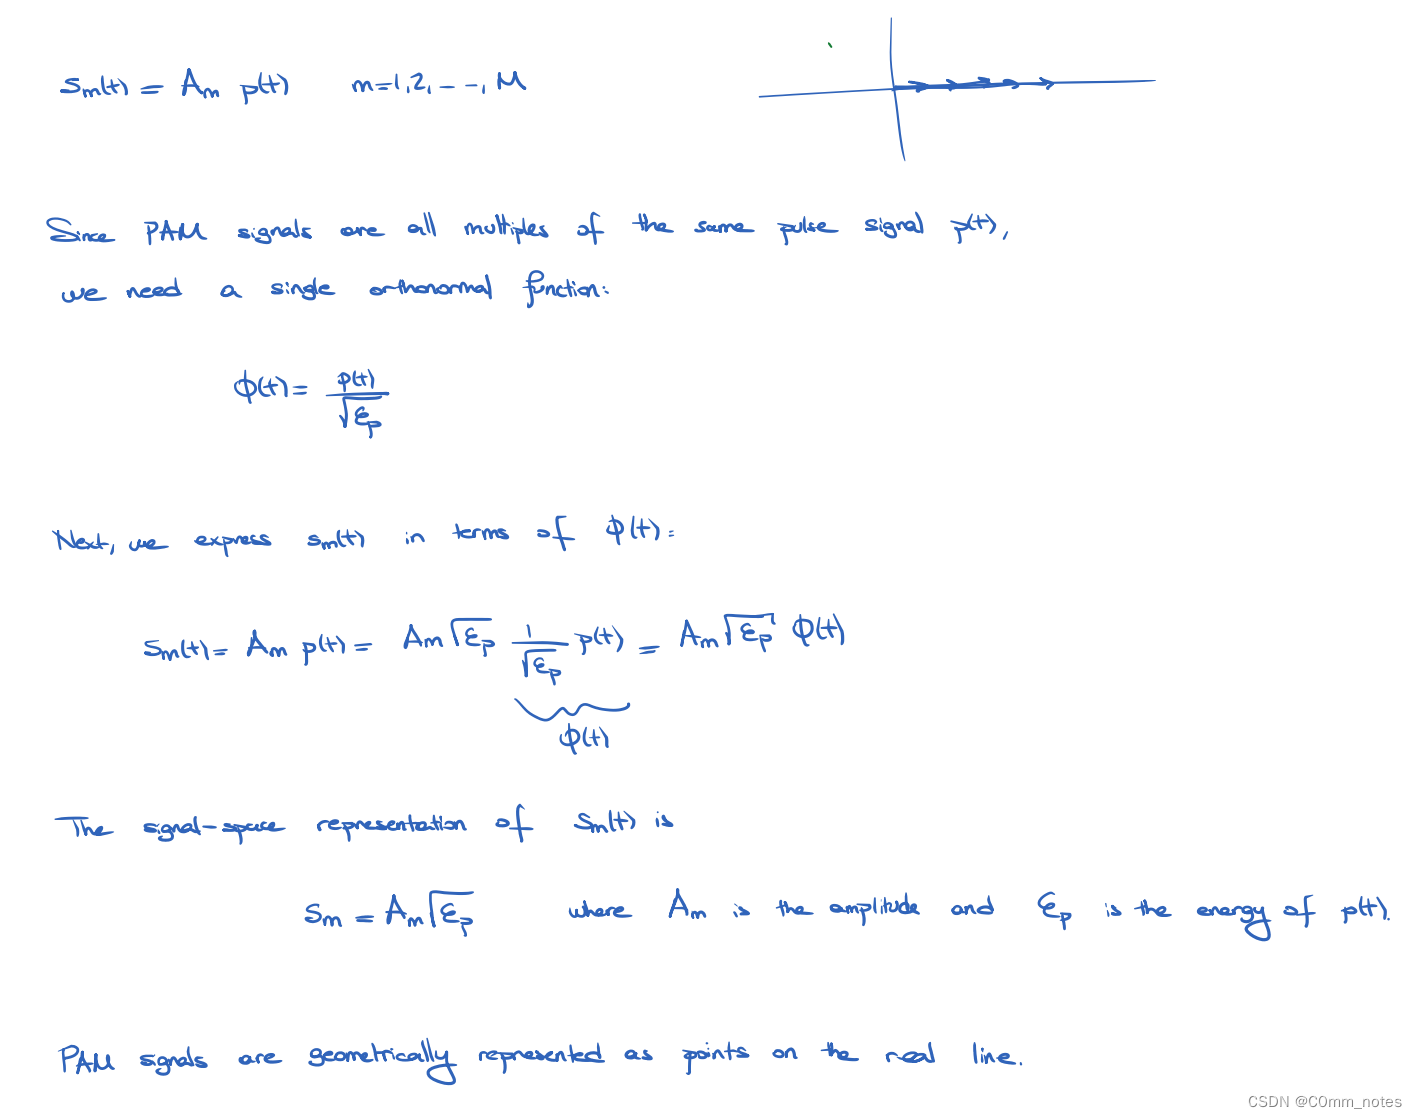 Sm(t) = Am p(t) m=1,2,---, M
Since PAM signals are all multiples of the same pulse signal p(t),
we need a single orthonormal function:
ϕ(t) = p(t)/√Ep
Next, we express Sm(t) in terms of ϕ(t):
Sm(t) = Am p(t) = Am √Ep 1/√Ep p(t) = Am √Ep ϕ(t)
ϕ(t)
The signal-space representation of Sm(t) is
Sm = Am √Ep where Am is the amplitude and Ep is the energy of p(t).
PAM signals are geometrically represented as points on the real line.
CSDN @C0mm_notes